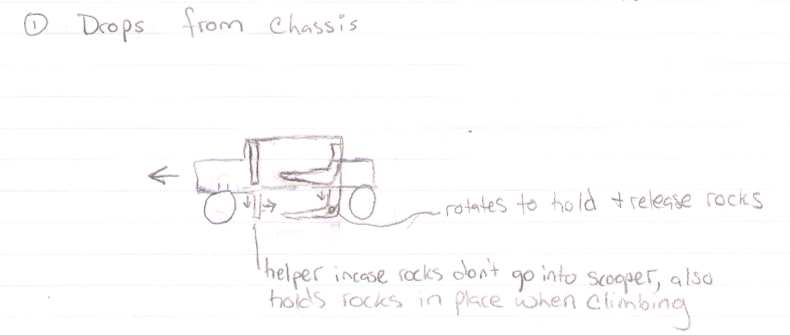 ① Drops from Chassis
rotates to hold + release rocks
helper incase rocks don't go into scooper, also
holds rocks in place when climbing